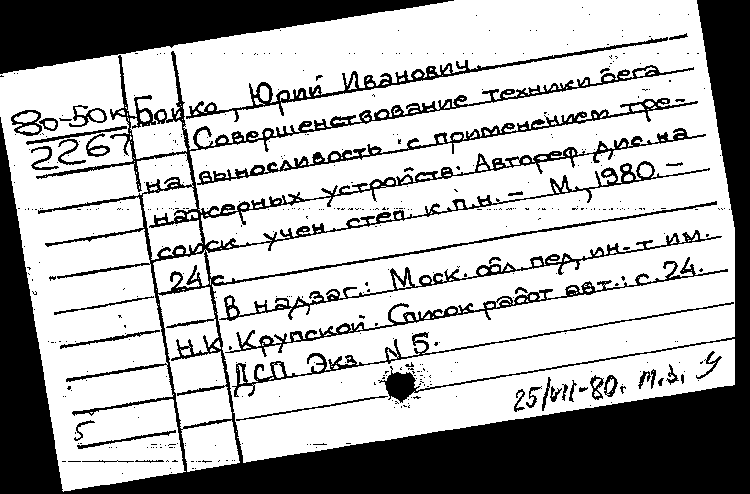 80-50к Бойко, Юрий Иванович.
2267 Совершенствование техники бега
на выносливость с применением тре-
нажерных устройств: Автореф. дис. на
соиск. учен. степ. к.п.н. - М., 1980. -
24 с.
В надзаг.: Моск. обл. пед. ин-т им.
Н.К. Крупской. Список работ авт.: с. 24.
ДСП. Экз. N 5.
25/VII-80.
5